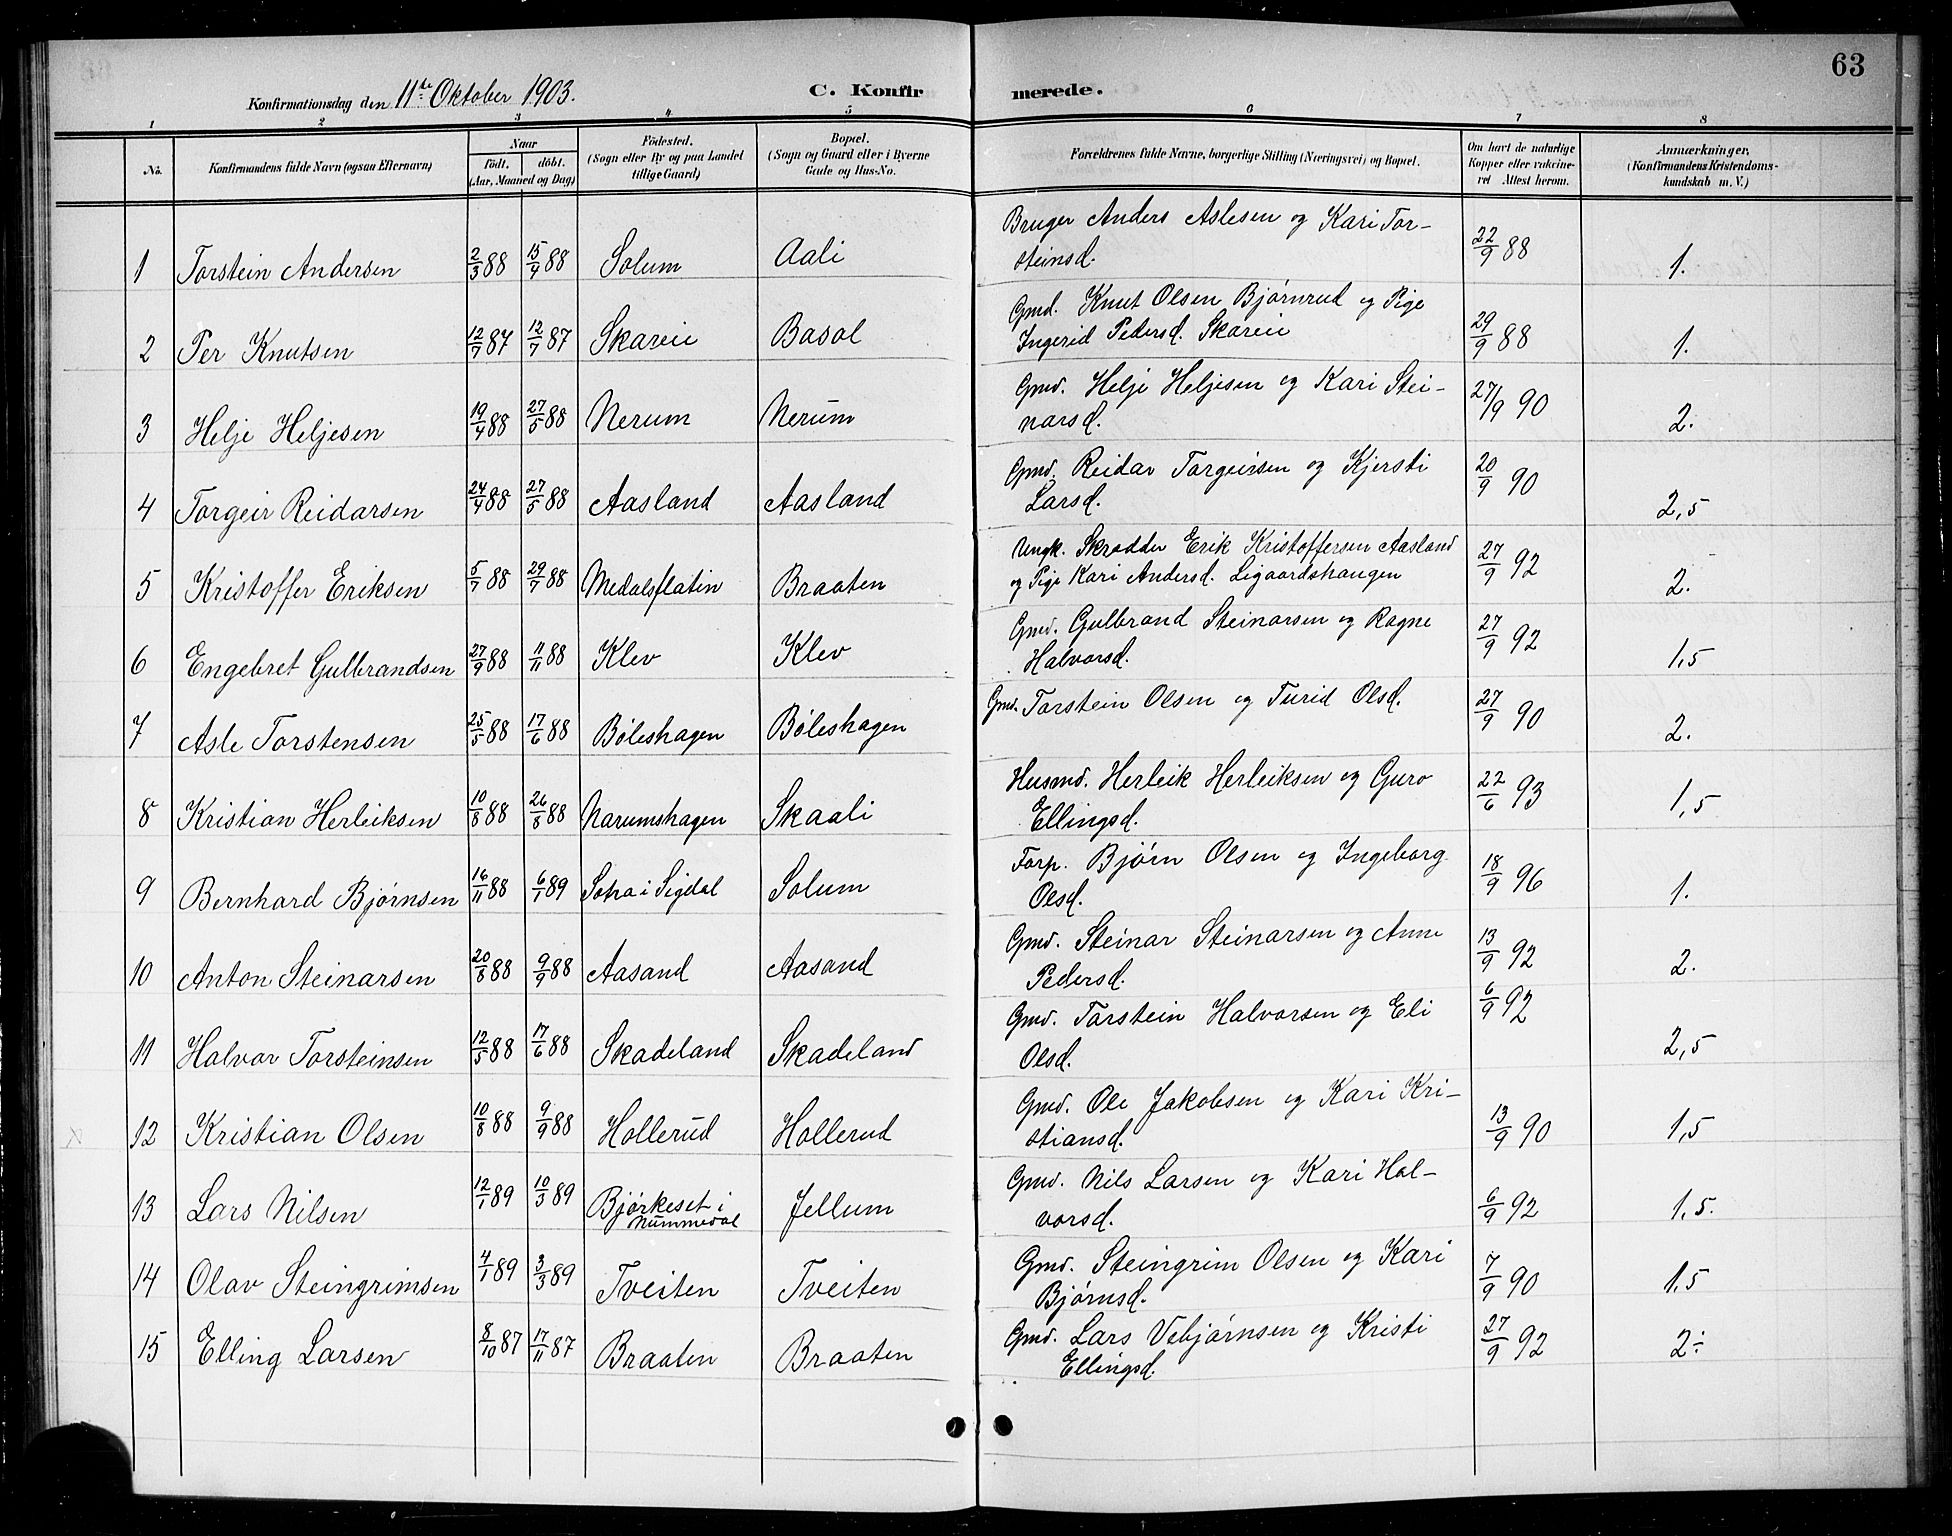 63
Konfirmationsdag den 11te Oktober 1903.
C. Konfirmerede.
1 2 3 4 5 6 7 8
No.
Konfirmandens fulde Navn (ogsaa Efternavn)
Naar
født. døbt.
(Aar, Maaned og Dag)
Fødested.
(Sogn eller By og paa Landet
tillige Gaard)
Bopæl.
(Sogn og Gaard eller i Byerne
Gade og Hus-No.
Forældrenes fulde Navne, borgerlige Stilling (Næringsvei) og Bopæl.
Om havt de naturlige
Kopper eller vakcine-
ret Attest herom.
Anmærkninger,
(Konfirmandens Kristendoms-
kundskab m. V.)
1 Torstein Andersen 2/3 88 15/4 88 Solum Aali Bruger Anders Aslesen og Kari Tor-
steinsd. 22/9 88 1.
2 Per Knutsen 12/7 87 12/7 87 Skareie Basol Gmd. Knut Olsen Bjørnrud og Pige
Ingerid Pedersd. Skareie 29/9 88 1.
3 Helje Heljesen 19/4 88 27/5 88 Nerum Nerum Gmd. Helje Heljesen og Kari Stei-
narsd. 27/9 90 2.
4 Torgeir Reidarsen 24/4 88 27/5 88 Aasland Aasland Gmd. Reidar Torgeirsen og Kjersti
Larsd. 20/9 90 2,5
5 Kristoffer Eriksen 5/7 88 29/7 88 Medalsflatin Braaten Ungk. Skrædder Erik Kristoffersen Aasland
og Pige Kari Andersd. Ligaardshaugen 27/9 92 2.
6 Engebret Gulbrandsen 27/9 88 11/11 88 Klev Klev Gmd. Gulbrand Steinarsen og Ragne
Halvorsd. 27/9 92 1,5
7 Asle Torstensen 25/5 88 17/6 88 Bøleshagen Bøleshagen Gmd. Torstein Olsen og Turid Olsd. 27/9 90 2.
8 Kristian Herleiksen 10/8 88 26/8 88 Narumshagen Skaali Husmd. Herleik Herleiksen og Guro
Ellingsd. 22/6 93 1,5
9 Bernhard Bjørnsen 16/11 88 6/1 89 Solra i Sigdal Solum Forp. Bjørn Olsen og Ingeborg
Olsd. 18/9 96 1.
10 Anton Steinarsen 20/8 88 9/9 88 Aasand Aasand Gmd. Steinar Steinarsen og Anne
Pedersd. 13/9 92 2.
11 Halvor Torsteinsen 12/5 88 17/6 88 Skadeland Skadeland Gmd. Torstein Halvorsen og Eli
Olsd. 6/9 92 2,5
12 Kristian Olsen 10/8 88 9/9 88 Hollerud Hollerud Gmd. Ole Jakobsen og Kari Kri-
stiansd. 13/9 90 1,5
13 Lars Nilsen 12/1 89 10/3 89 Bjørkeset i
Nummedal Jellum Gmd. Nils Larsen og Kari Hal-
vorsd. 6/9 92 1,5.
14 Olav Steingrimsen 4/1 89 3/3 89 Tveiten Tveiten Gmd. Steingrim Olsen og Kari
Bjørnsd. 7/9 90 1,5
15 Elling Larsen 8/10 87 17/11 87 Braaten Braaten Gmd. Lars Vebjørnsen og Kristi
Ellingsd. 27/9 92 2÷